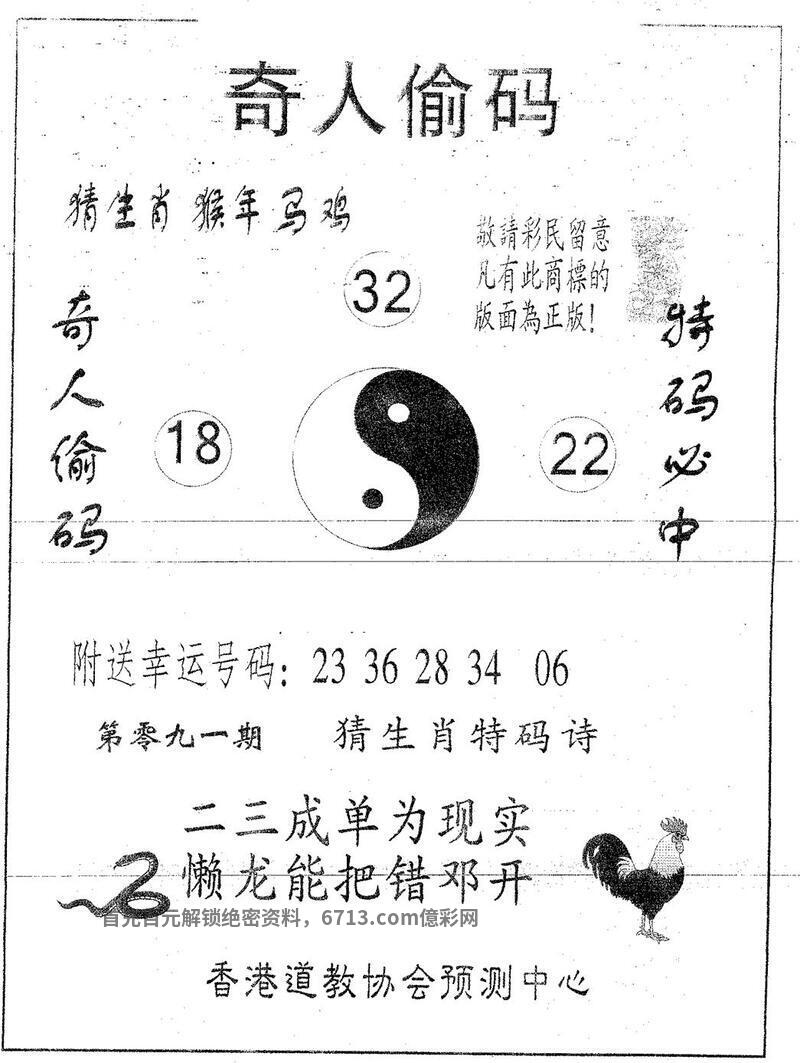 奇人偷码
猜生肖 猴年马鸡
敬請彩民留意
凡有此商標的
版面為正版！
32
奇人偷码
特码必中
18
22
附送幸运号码：23 36 28 34 06
第零九一期 猜生肖特码诗
二三成单为现实
懒龙能把错邓开
首充百元解锁绝密资料，6713.com億彩网
香港道教协会预测中心